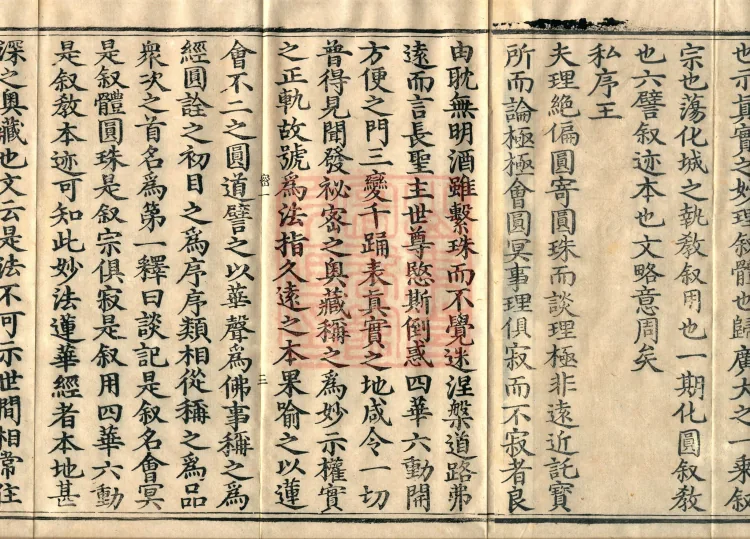 也示真實之妙理叙體也歸廣大之一乘叙
宗也蕩化城之執教叙用也一期化圓叙教
也六譬叙迹本也文略意周矣
私序王
夫理絶偏圓寄圓珠而談理極非遠近託寶
所而論極極會圓冥事理俱寂而不寂者良
由耽無明酒雖繫珠而不覺迷涅槃道路弗
遠而言長聖主世尊愍斯倒惑四華六動開
方便之門三變千踊表真實之地咸令一切
普得見聞發祕密之奧藏稱之爲妙示權實
之正軌故號爲法指久遠之本果喻之以蓮
一 三
會不二之圓道譬之以華聲爲佛事稱之爲
經圓詮之初目之爲序序類相從稱之爲品
衆次之首名爲第一釋曰談記是叙名會冥
是叙體圓珠是叙宗俱寂是叙用四華六動
是叙教本迹可知此妙法蓮華經者本地甚
深之奧藏也文云是法不可示世間相常住